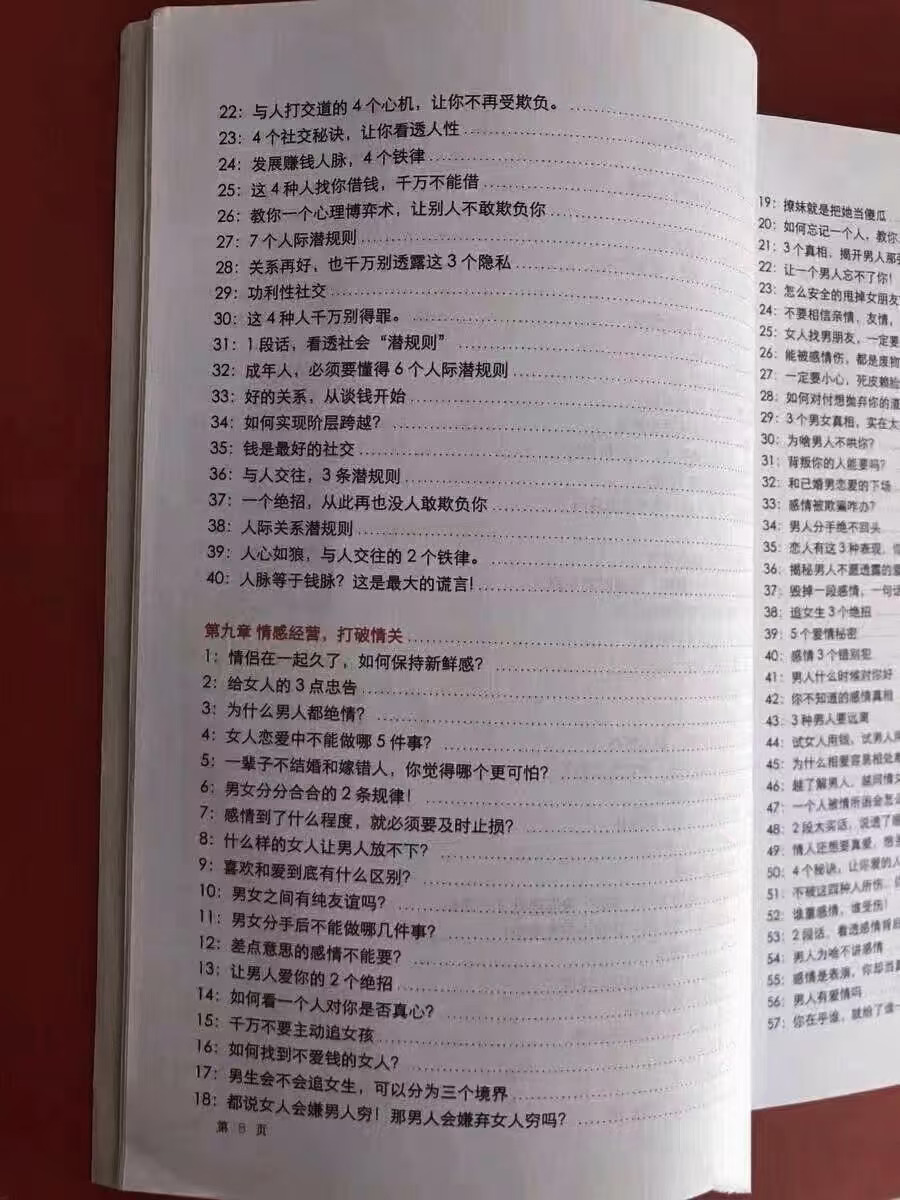 22：与人打交道的 4 个心机，让你不再受欺负。
23：4 个社交秘诀，让你看透人性
24：发展赚钱人脉，4 个铁律
25：这 4 种人找你借钱，千万不能借
26：教你一个心理博弈术，让别人不敢欺负你
27：7 个人际潜规则
28：关系再好，也千万别透露这 3 个隐私
29：功利性社交
30：这 4 种人千万别得罪。
31：1 段话，看透社会“潜规则”
32：成年人，必须要懂得 6 个人际潜规则
33：好的关系，从谈钱开始
34：如何实现阶层跨越？
35：钱是最好的社交
36：与人交往，3 条潜规则
37：一个绝招，从此再也没人敢欺负你
38：人际关系潜规则
39：人心如狼，与人交往的 2 个铁律。
40：人脉等于钱脉？这是最大的谎言！
第九章 情感经营，打破情关
1：情侣在一起久了，如何保持新鲜感？
2：给女人的 3 点忠告
3：为什么男人都绝情？
4：女人恋爱中不能做哪 5 件事？
5：一辈子不结婚和嫁错人，你觉得哪个更可怕？
6：男女分分合合的 2 条规律！
7：感情到了什么程度，就必须要及时止损？
8：什么样的女人让男人放不下？
9：喜欢和爱到底有什么区别？
10：男女之间有纯友谊吗？
11：男女分手后不能做哪几件事？
12：差点意思的感情不能要？
13：让男人爱你的 2 个绝招
14：如何看一个人对你是否真心？
15：千万不要主动追女孩
16：如何找到不爱钱的女人？
17：男生会不会追女生，可以分为三个境界
18：都说女人会嫌男人穷！那男人会嫌弃女人穷吗？
第 8 页
19：撩妹就是把她当傻瓜
20：如何忘记一个人，教你
21：3 个真相，揭开男人那
22：让一个男人忘不了你！
23：怎么安全的甩掉女朋友
24：不要相信亲情，友情，
25：女人找男朋友，一定要
26：能被感情伤，都是废物
27：一定要小心，死皮赖脸
28：如何对付想抛弃你的渣
29：3 个男女真相，实在太
30：为啥男人不哄你？
31：背叛你的人能要吗？
32：和已婚男恋爱的下场
33：感情被欺骗咋办？
34：男人分手绝不回头
35：恋人有这 3 种表现，
36：揭秘男人不愿透露的
37：毁掉一段感情，一句话
38：追女生 3 个绝招
39：5 个爱情秘密
40：感情 3 个错别犯
41：男人什么时候对你好
42：你不知道的感情真相
43：3 种男人要远离
44：试女人用钱，试男人用
45：为什么相爱容易相处
46：越了解男人，越
47：一个人被情所困会怎
48：2 段大实话，说透了
49：情人还想要真爱，
50：4 个秘诀，让你爱的人
51：不被这四种人所伤，
52：谁重感情，谁受伤！
53：2 段话，看透感情背后
54：男人为啥不讲感情
55：感情是表演，你却当真
56：男人有爱情吗
57：你在乎谁，就给了谁一